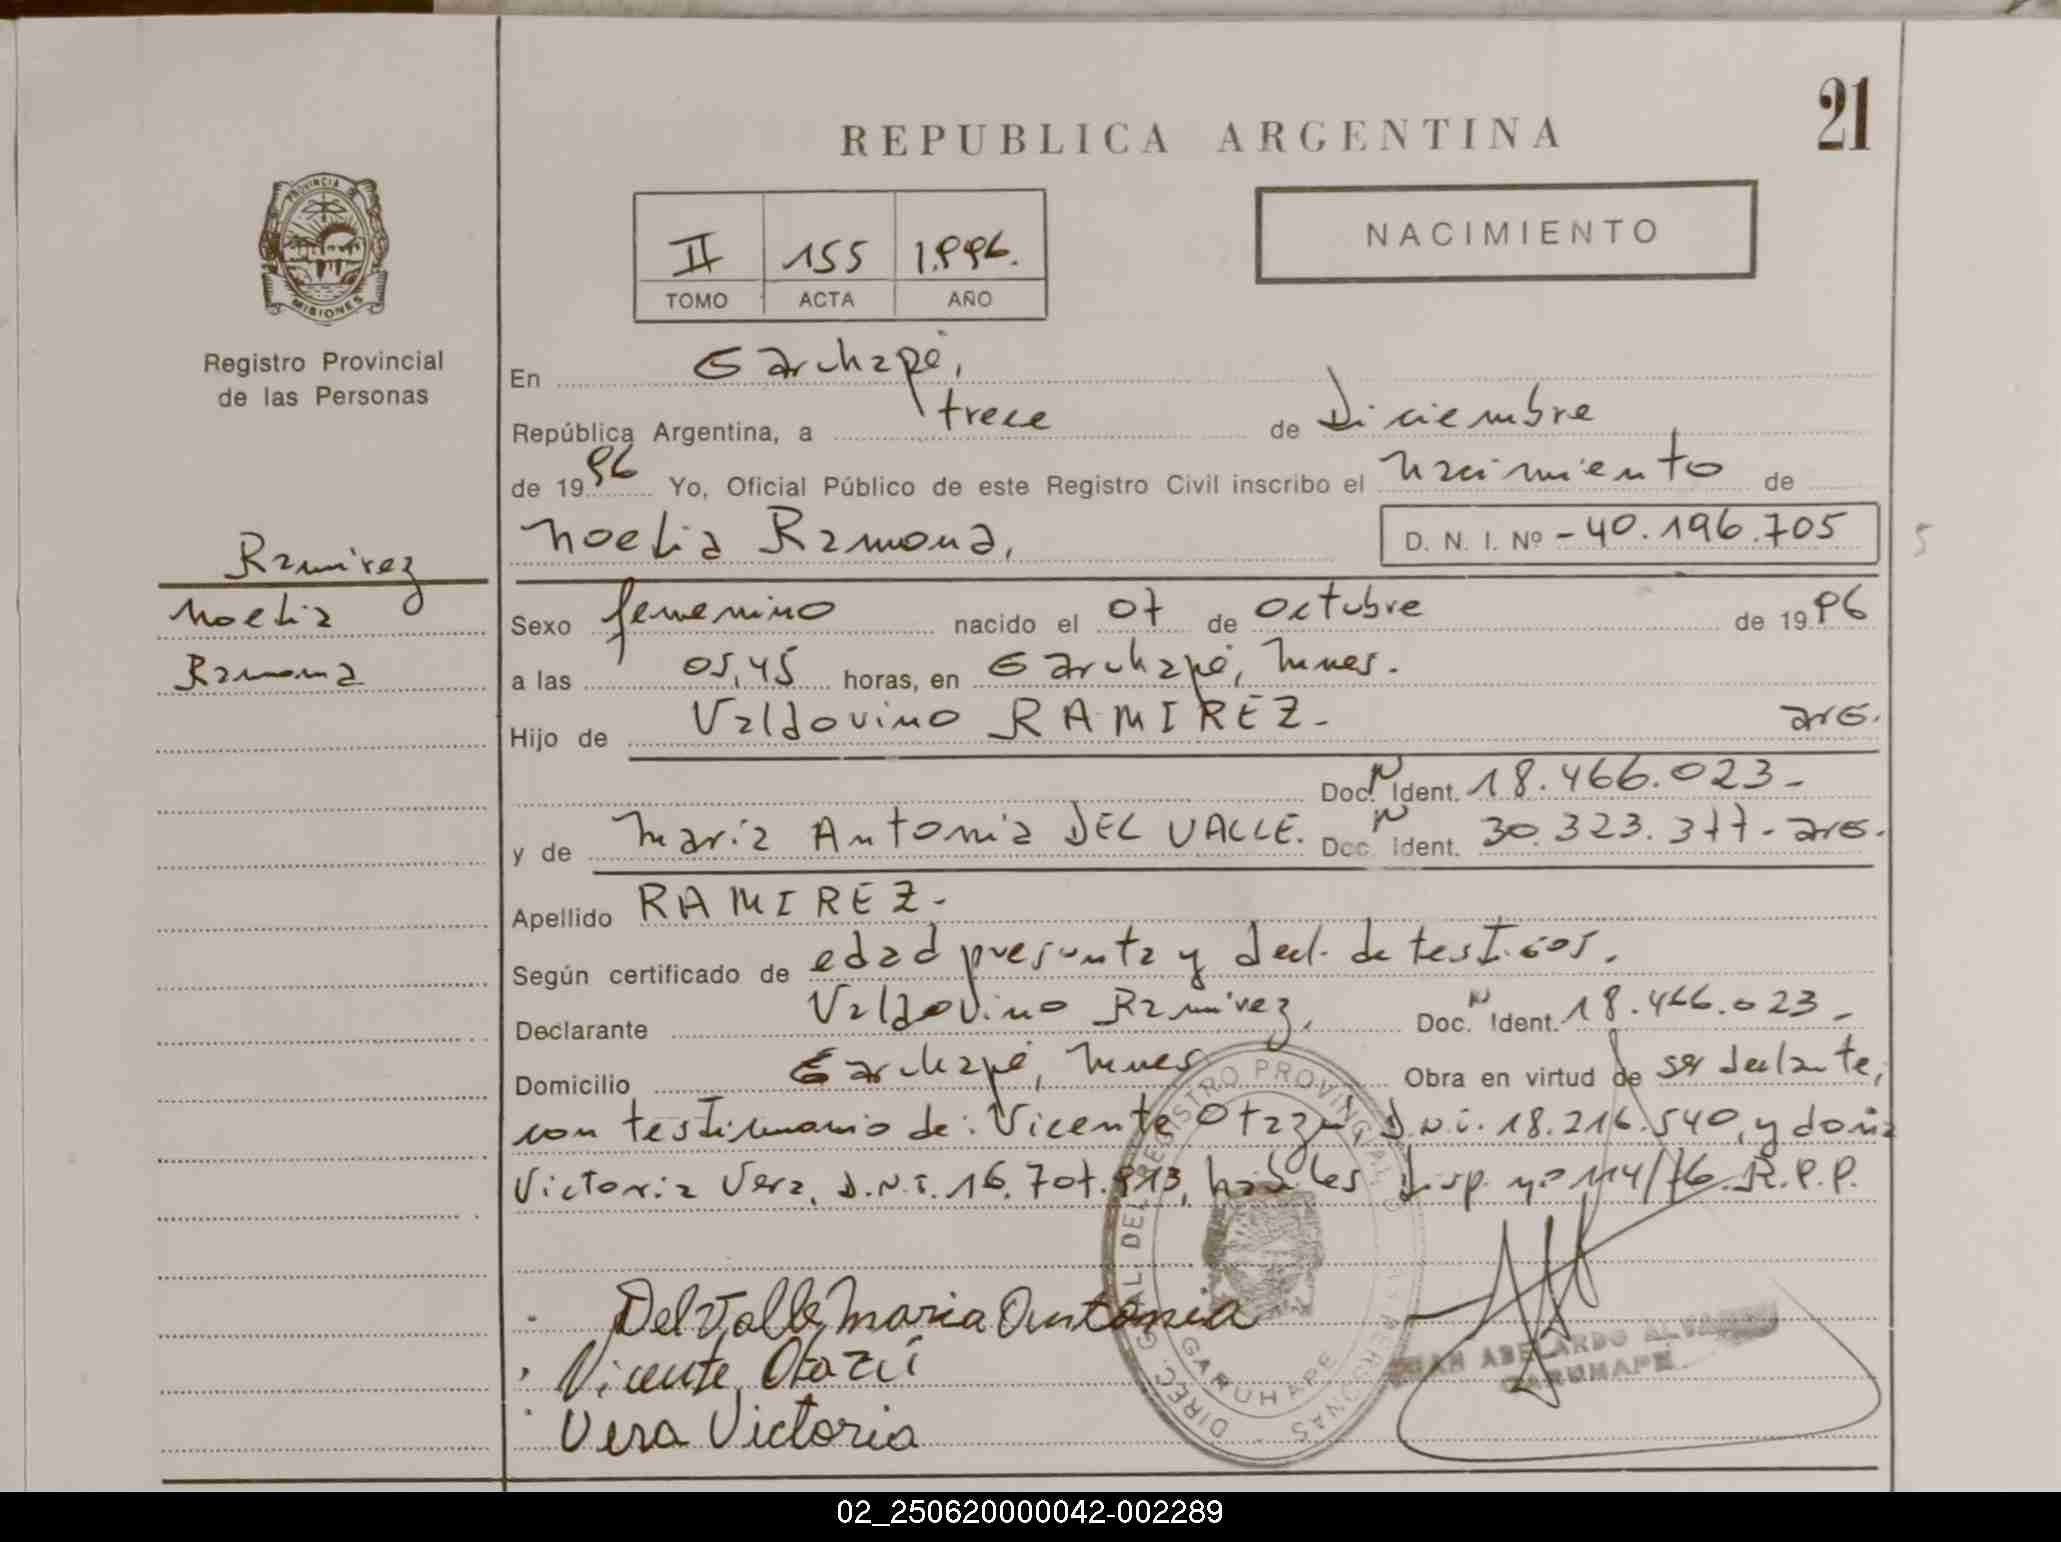 21
REPUBLICA ARGENTINA
NACIMIENTO
II 155 1.996.
TOMO ACTA AÑO
PROVINCIA DE
MISIONES
Registro Provincial
de las Personas
Ramirez
Noelia
Ramona
En Garuhapé,
República Argentina, a trece de Diciembre
de 1996 Yo, Oficial Público de este Registro Civil inscribo el nacimiento de
Noelia Ramona, D. N. I. Nº -40.196.705
5
Sexo femenino nacido el 07 de octubre de 1996
a las 05,45 horas, en Garuhapé, Mnes.
Hijo de Valdovino RAMIREZ- arg.
Doc. N Ident. 18.466.023-
y de Maria Antonia DEL VALLE. Doc. N Ident. 30.323.377- arg.
Apellido RAMIREZ-
Según certificado de edad presunta y decl. de testigos.
Declarante Valdovino Ramirez, Doc. N Ident. 18.466.023-
Domicilio Garuhapé, Mnes Obra en virtud de ser declante,
con testimonio de: Vicente Otazú, D.N.i. 18.216.540, y doña
Victoria Vera, D.N.I. 16.707.913, habiles Disp. nº 114/76. R.P.P.
DIREC. GRAL. DEL REGISTRO PROVINCIAL DE LAS PERSONAS
GARUHAPE
Del Valle Maria Antonia
Vicente Otazú
Vera Victoria
JUAN ABELARDO
GARUHAPE
02_250620000042-002289